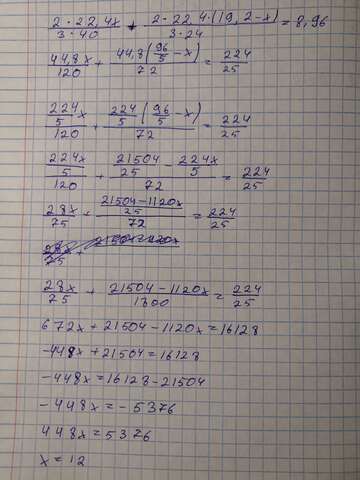 2·22,4x/3·40 + 2·22,4·(19,2-x)/3·24 = 8,96
44,8x/120 + 44,8(96/5-x)/72 = 224/25
224/5 x/120 + 224/5 (96/5-x)/72 = 224/25
224x/5/120 + 21504/25 - 224x/5/72 = 224/25
28x/75 + 21504-1120x/25/72 = 224/25
28x/75 + 21504-1120x/1800 = 224/25
672x+21504-1120x=16128
-448x+21504=16128
-448x=16128-21504
-448x=-5376
448x=5376
x=12